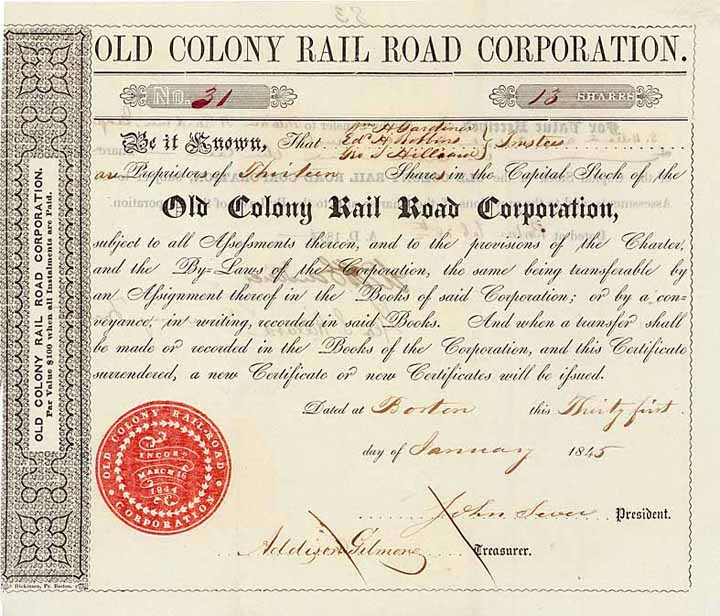 OLD COLONY RAIL ROAD CORPORATION.
No. 31 13 SHARES
Wm H Gardiner
Be it Known, That Edd H Robbins Trustees
Geo S Hilliard
are Proprietors of Thirteen Shares in the Capital Stock of the
Old Colony Rail Road Corporation,
subject to all Assessments thereon, and to the provisions of the Charter,
and the By-Laws of the Corporation, the same being transferable by
an Assignment thereof in the Books of said Corporation; or by a con-
veyance, in writing, recorded in said Books. And when a transfer shall
be made or recorded in the Books of the Corporation, and this Certificate
surrendered, a new Certificate or new Certificates will be issued.
Dated at Boston this Thirty first
day of January 1845
John Sever President.
Addison Gilmore Treasurer.
OLD COLONY RAIL ROAD CORPORATION.
Par Value $100 when all Instalments are Paid.
OLD COLONY RAIL-ROAD
CORPORATION
INCOR.
MARCH 16
1844
Dickinson, Pr. Boston.